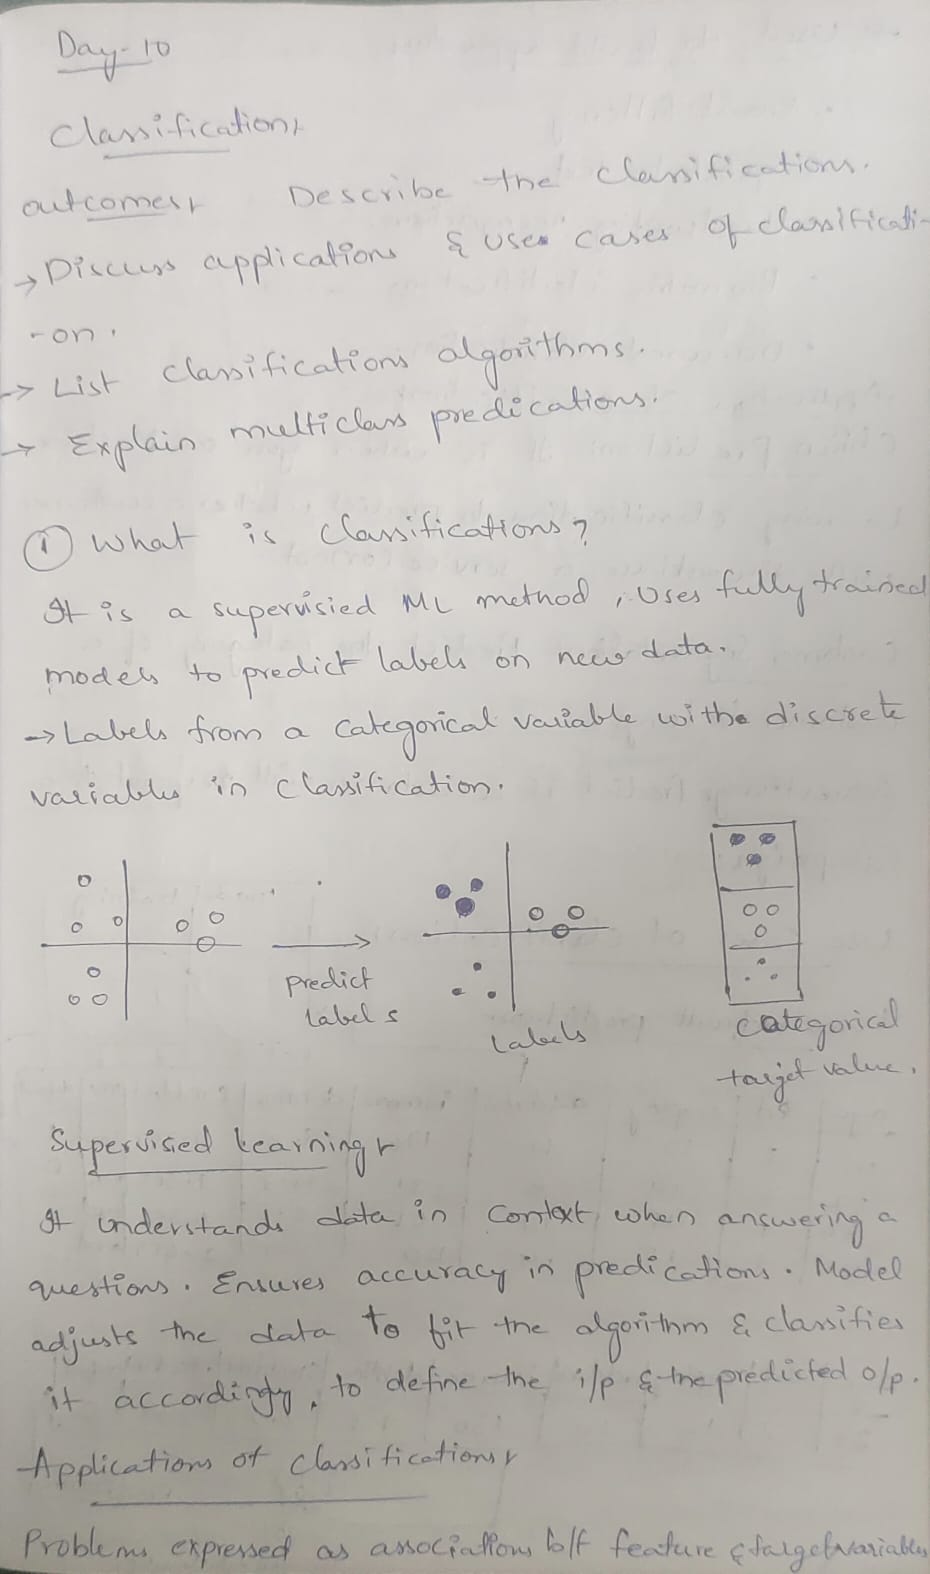 Day-10
Classification:
outcomes:  Describe the classifications.
→ Discuss applications & uses cases of classificati-
-on.
→ List classifications algorithms.
→ Explain multiclass predications.
① What is classifications?
It is a supervisied ML method, Uses fully trained
models to predict labels on new data.
→ Labels from a categorical variable withe discrete
variables in classification.
predict
labels
Labels
categorical
target value.
Supervised learning:
It understands data in context when answering a
questions. Ensures accuracy in predications. Model
adjusts the data to fit the algorithm & classifies
it accordingly, to define the i/p & the predicted o/p.
Applications of classifications:
Problems expressed as associations b/f feature & target variables